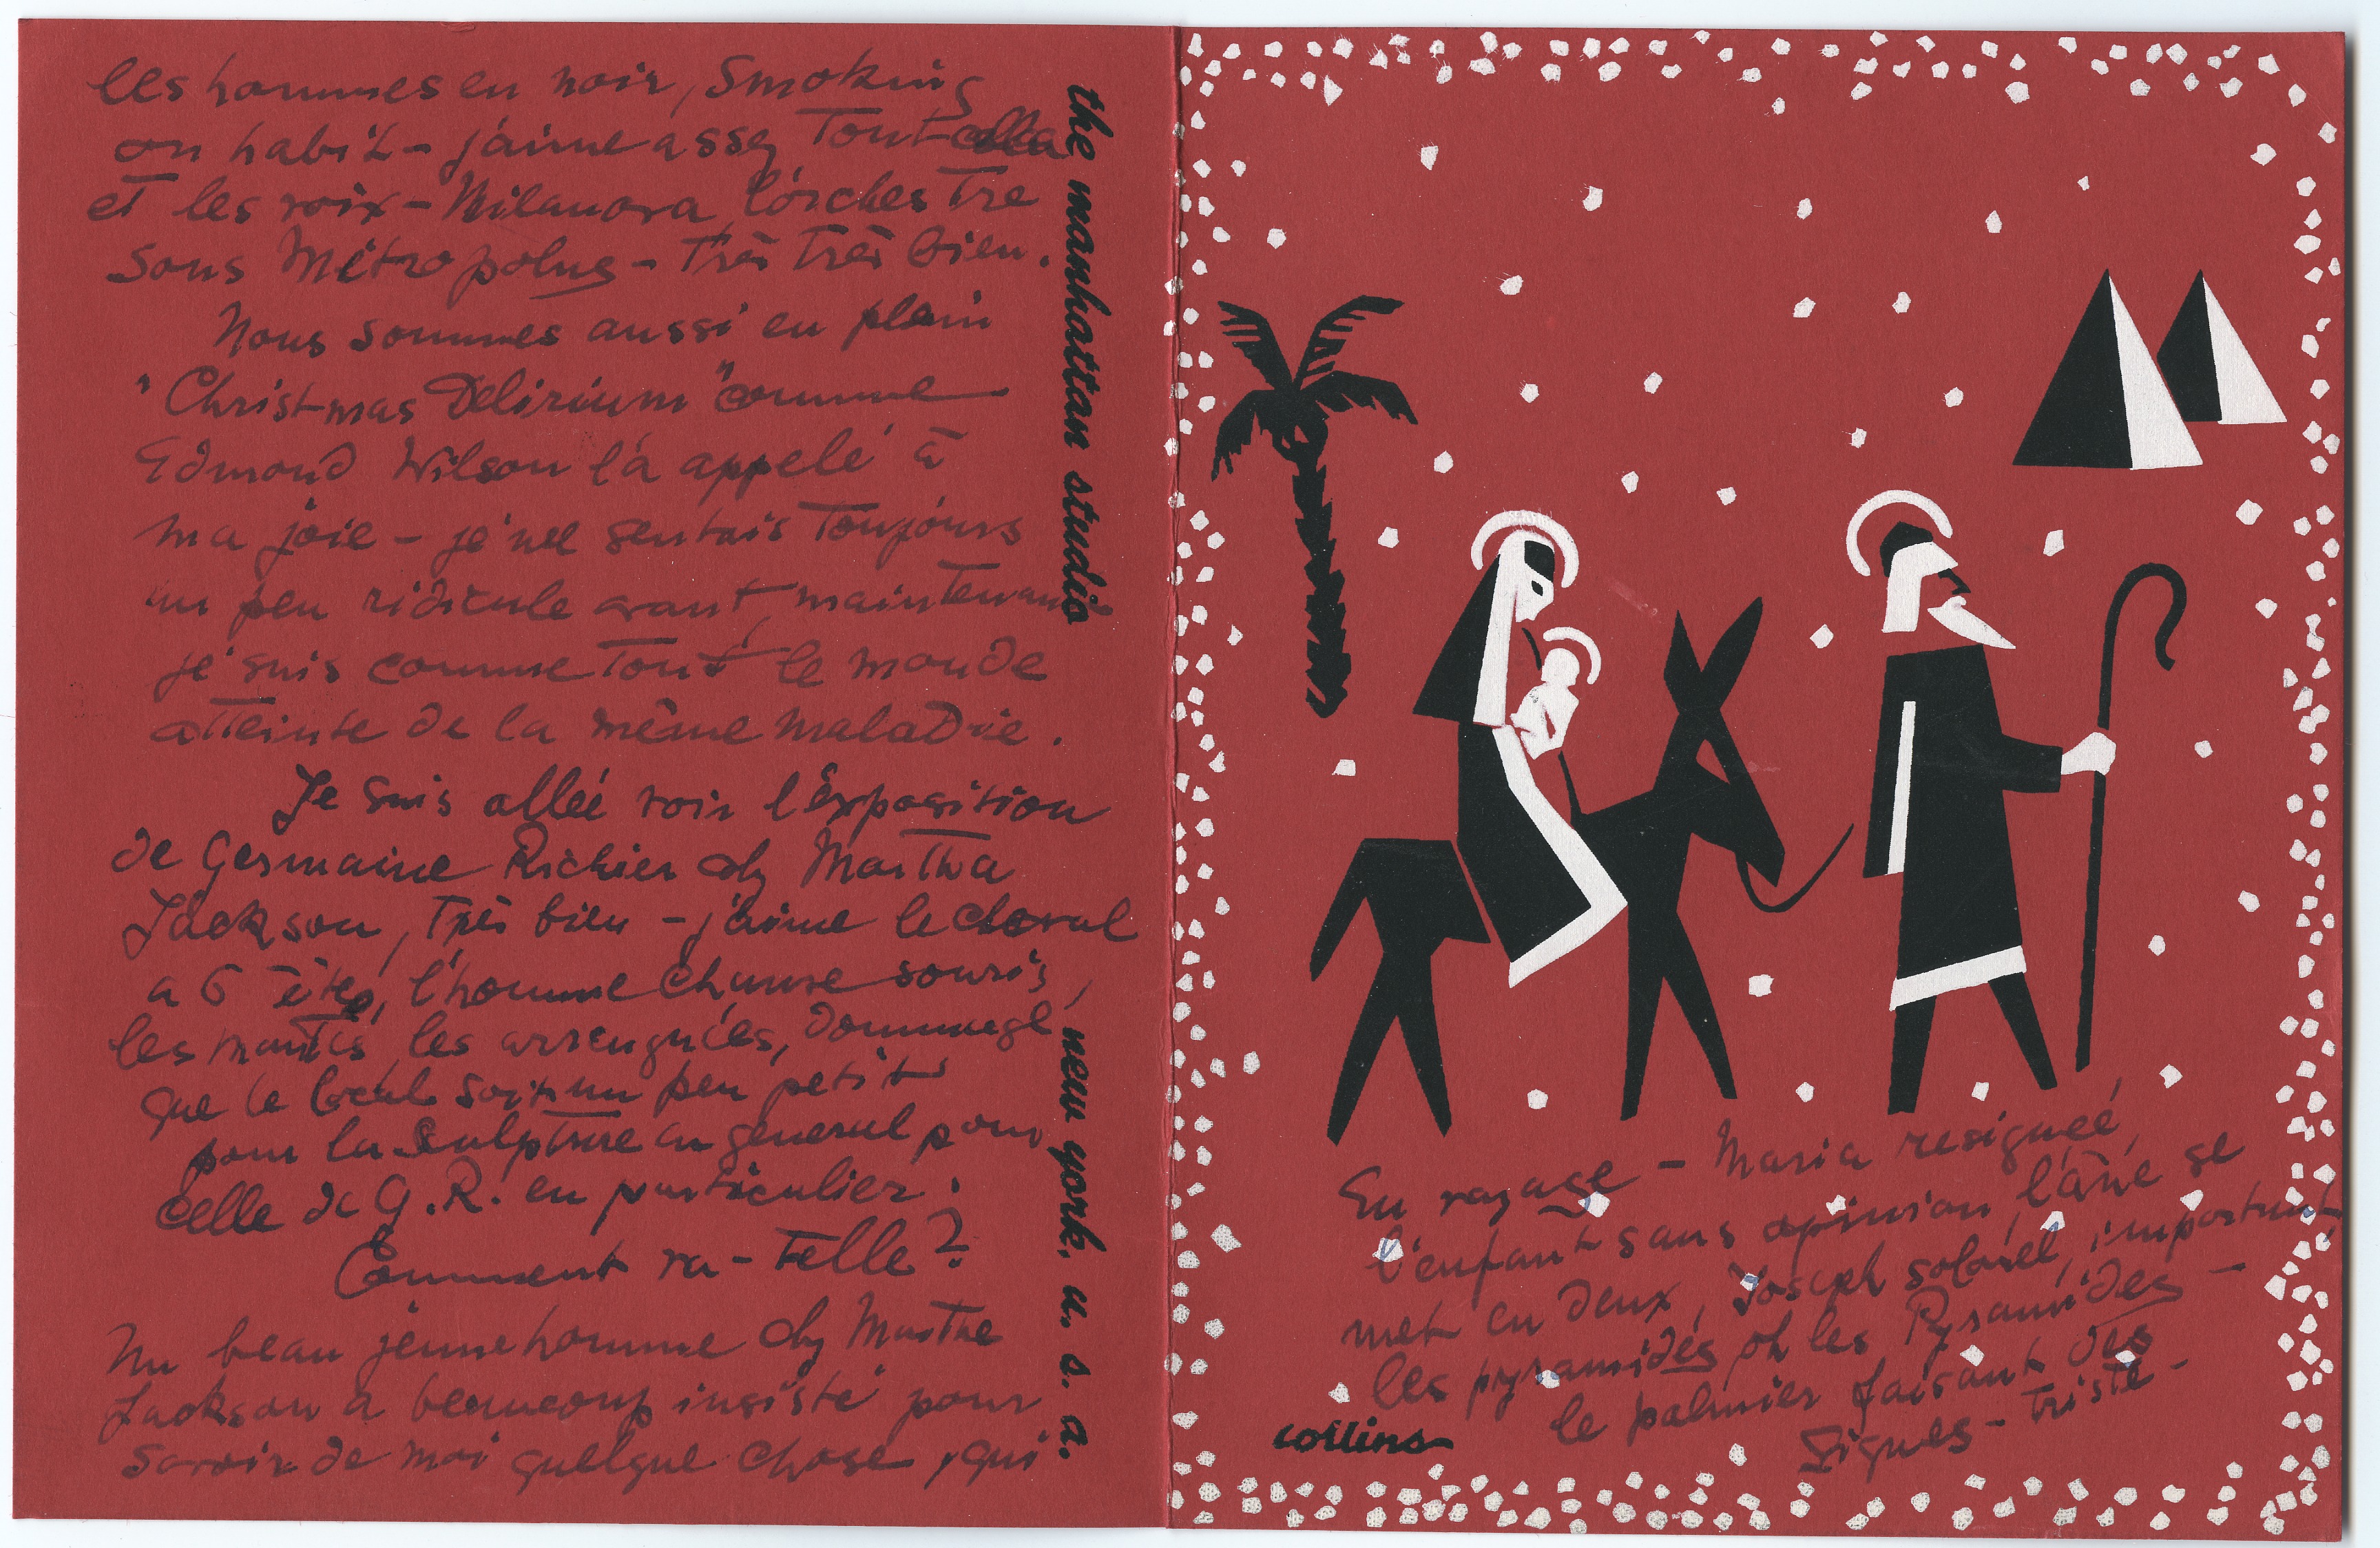 les hommes en noir, Smoking
ou habit - j'aime assez Tout cela
et les voix - Milanova, l'orchestre
sous Mitropolus - Très Très bien.
Nous sommes aussi en plein
"Christmas Delirium" comme
Edmond Wilson l'a appelé à
ma joie - je me sentais Toujours
un peu ridicule avant, maintenant
je suis comme Tout le monde
atteinte de la même maladie.
Je suis allée voir l'exposition
de Germaine Richier chez Martha
Jackson, Très bien - j'aime le cheval
a 6 têtes, l'homme chauve souris,
les mantes, les arraignées, dommage
que le local soit un peu petit
pour la sculpture en general pour
celle de G.R. en particulier.
Comment va-telle?
Un beau jeune homme chez Martha
Jackson a beaucoup insisté pour
savoir de moi quelque chose, qui
the manhattan studio
new york. u. s. a.
En voyage - Maria resignée,
l'enfant sans opinion, l'âne se
met en deux, Joseph solonel, important,
les pyramides oh les Pyramides -
le palmier faisant des
Signes - triste -
collins